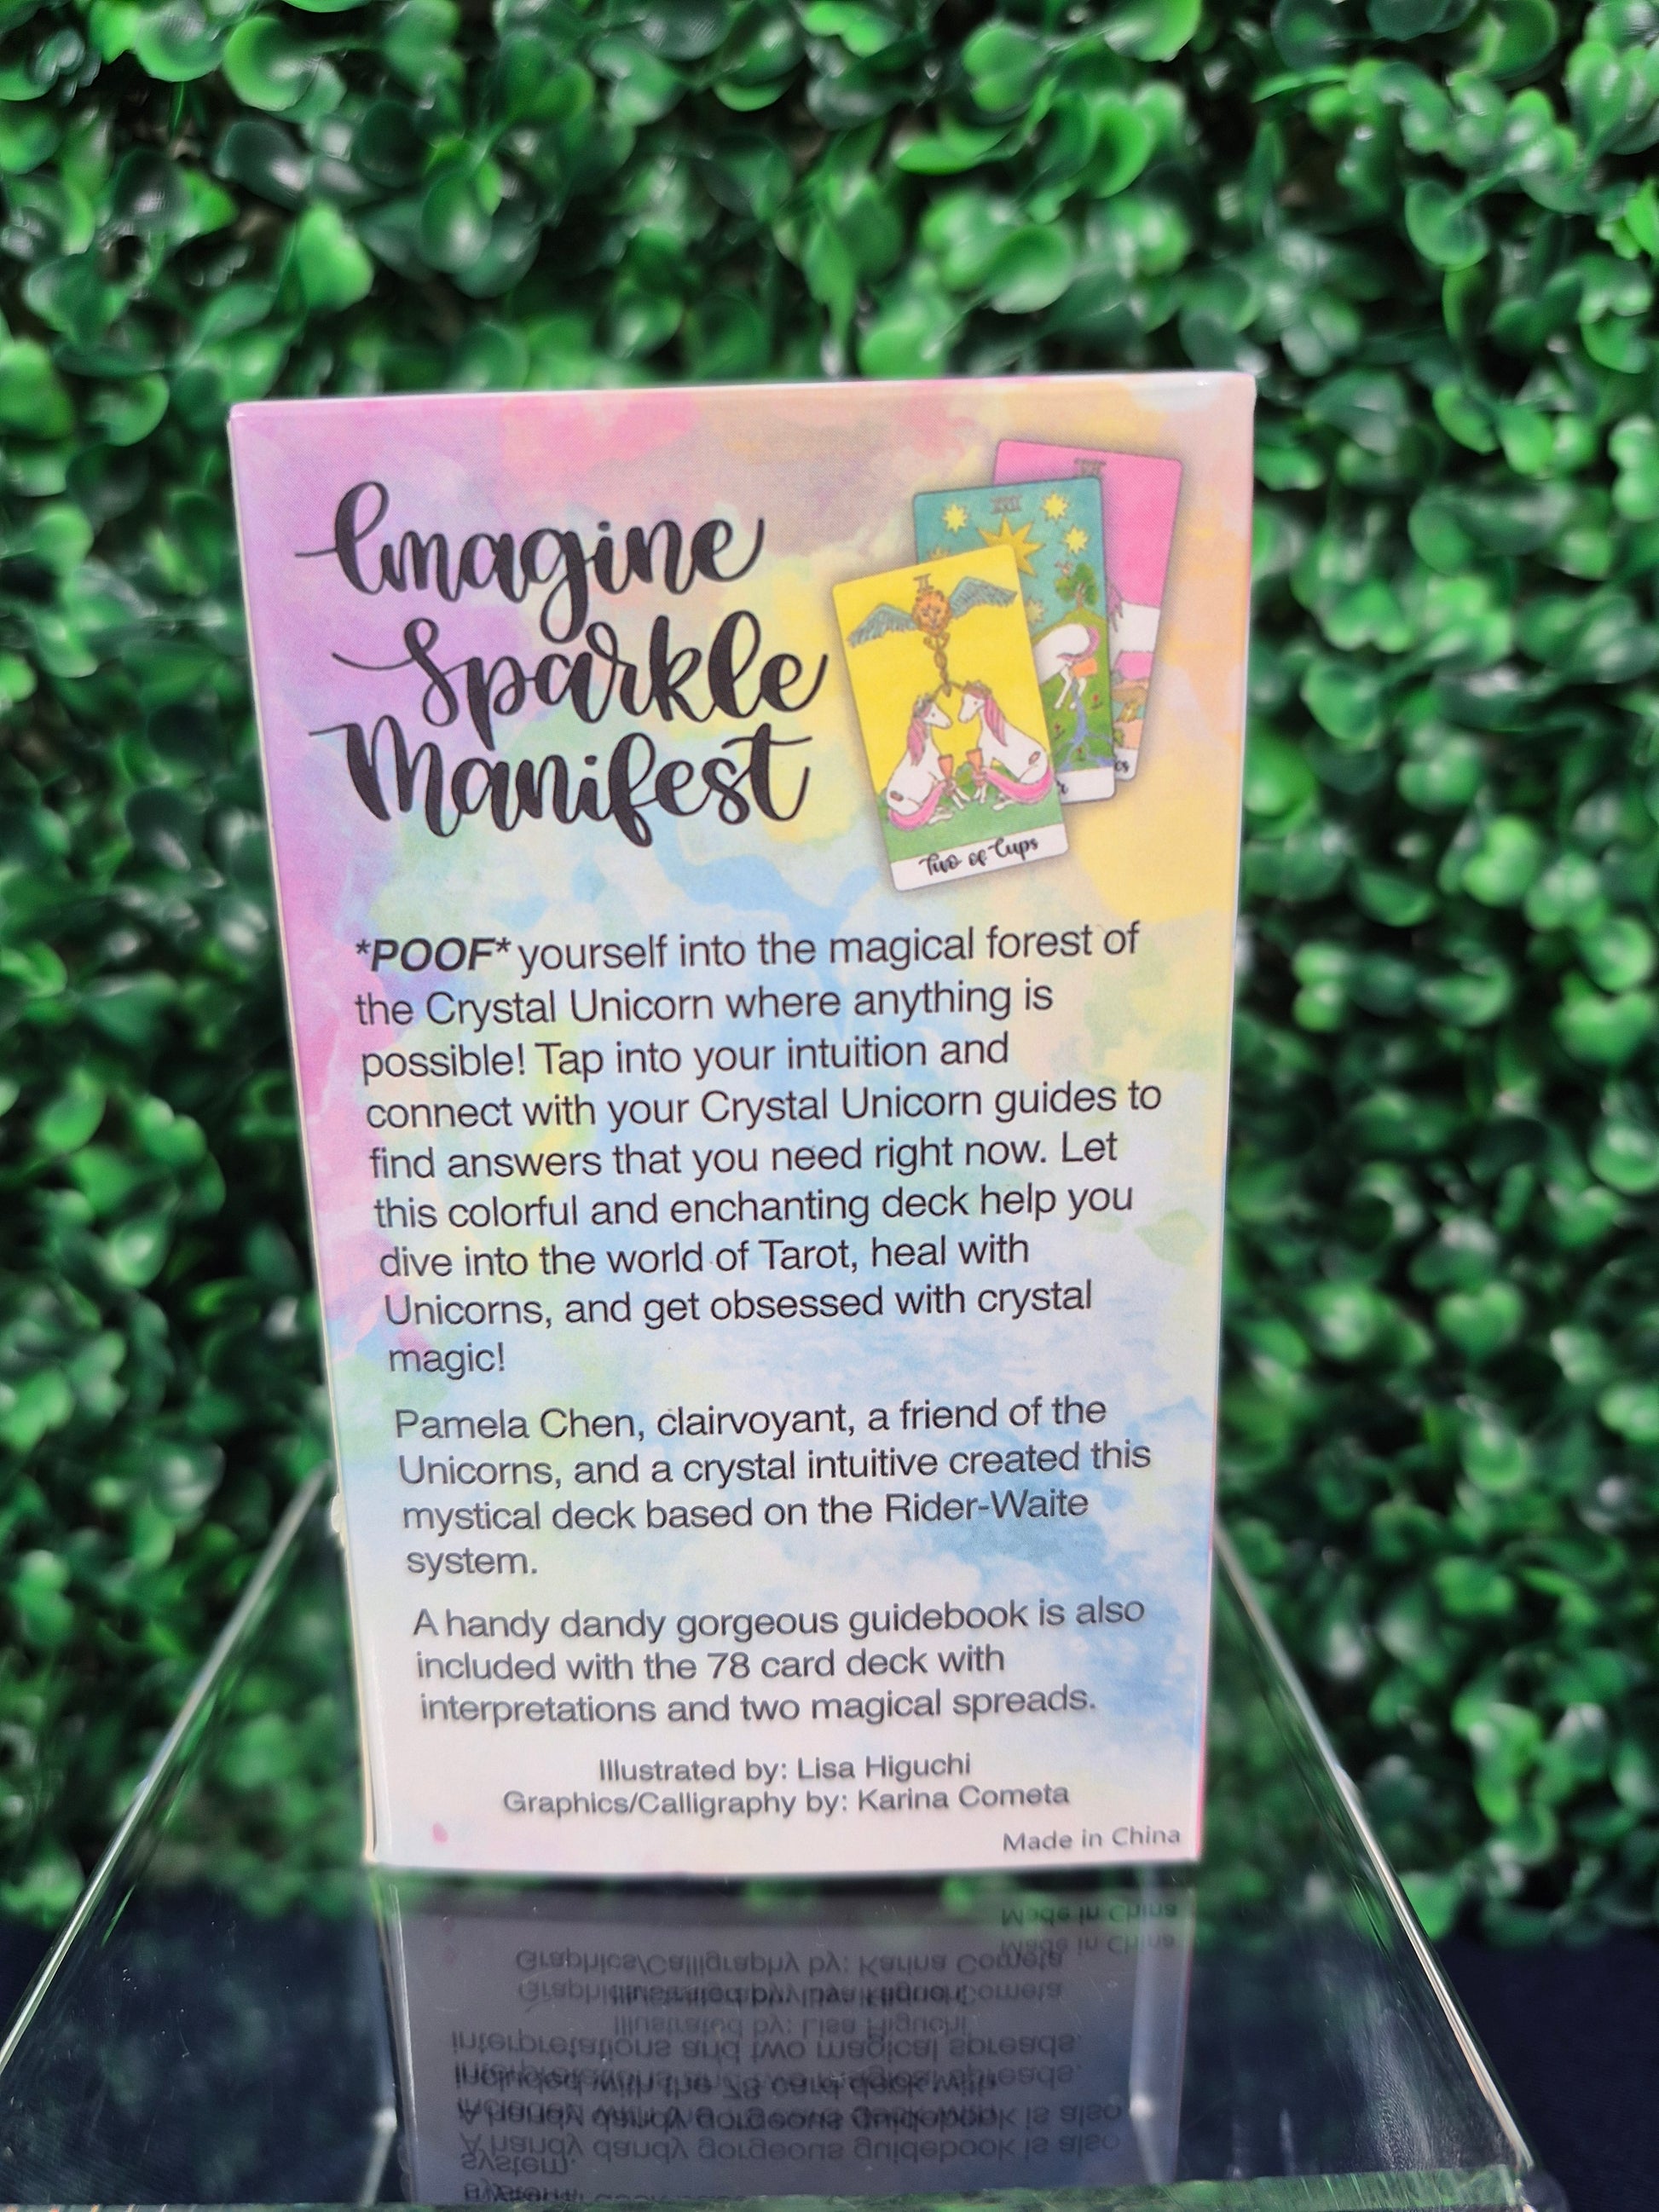 Imagine
Sparkle
Manifest
II
Two of Cups
*POOF* yourself into the magical forest of
the Crystal Unicorn where anything is
possible! Tap into your intuition and
connect with your Crystal Unicorn guides to
find answers that you need right now. Let
this colorful and enchanting deck help you
dive into the world of Tarot, heal with
Unicorns, and get obsessed with crystal
magic!
Pamela Chen, clairvoyant, a friend of the
Unicorns, and a crystal intuitive created this
mystical deck based on the Rider-Waite
system.
A handy dandy gorgeous guidebook is also
included with the 78 card deck with
interpretations and two magical spreads.
Illustrated by: Lisa Higuchi
Graphics/Calligraphy by: Karina Cometa
Made in China